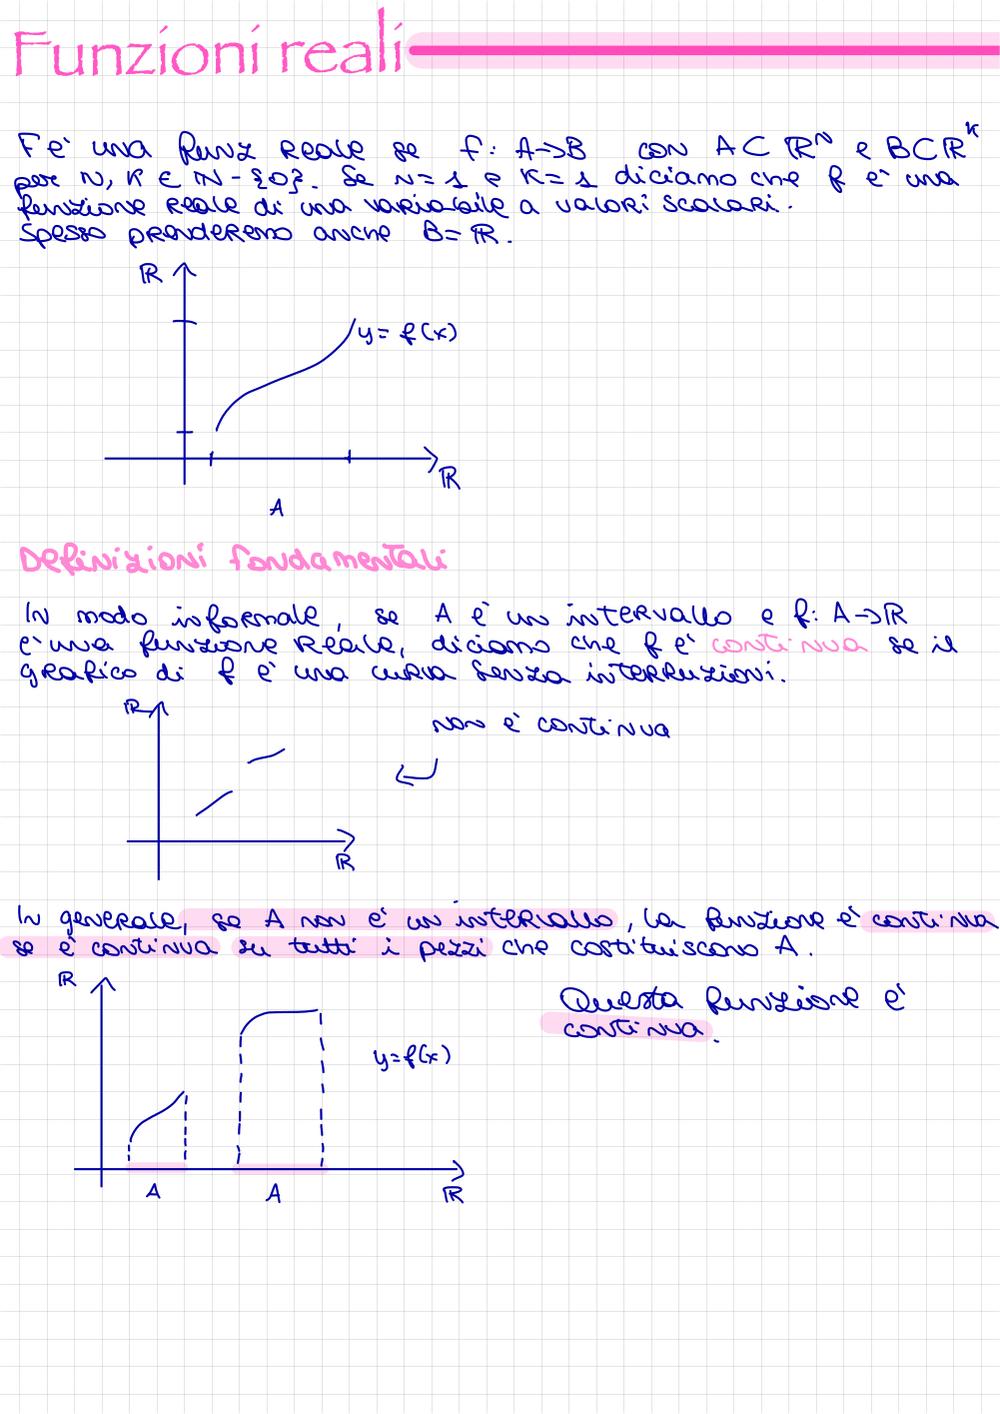 Funzioni reali
F è una funz reale se f: A→B con A⊂ℝᴺ e B⊂ℝᴷ
per N, K ∈ ℕ-{0}. Se N=1 e K=1 diciamo che f è una
funzione reale di una variabile a valori scalari.
Spesso prenderemo anche B=ℝ.
ℝ
y=f(x)
ℝ
A
Definizioni fondamentali
In modo informale, se A è un intervallo e f: A→ℝ
è una funzione reale, diciamo che f è continua se il
grafico di f è una curva senza interruzioni.
ℝ
non è continua
ℝ
In generale, se A non è un intervallo, la funzione è continua
se è continua su tutti i pezzi che costituiscono A.
ℝ
Questa funzione è
continua.
y=f(x)
A A ℝ